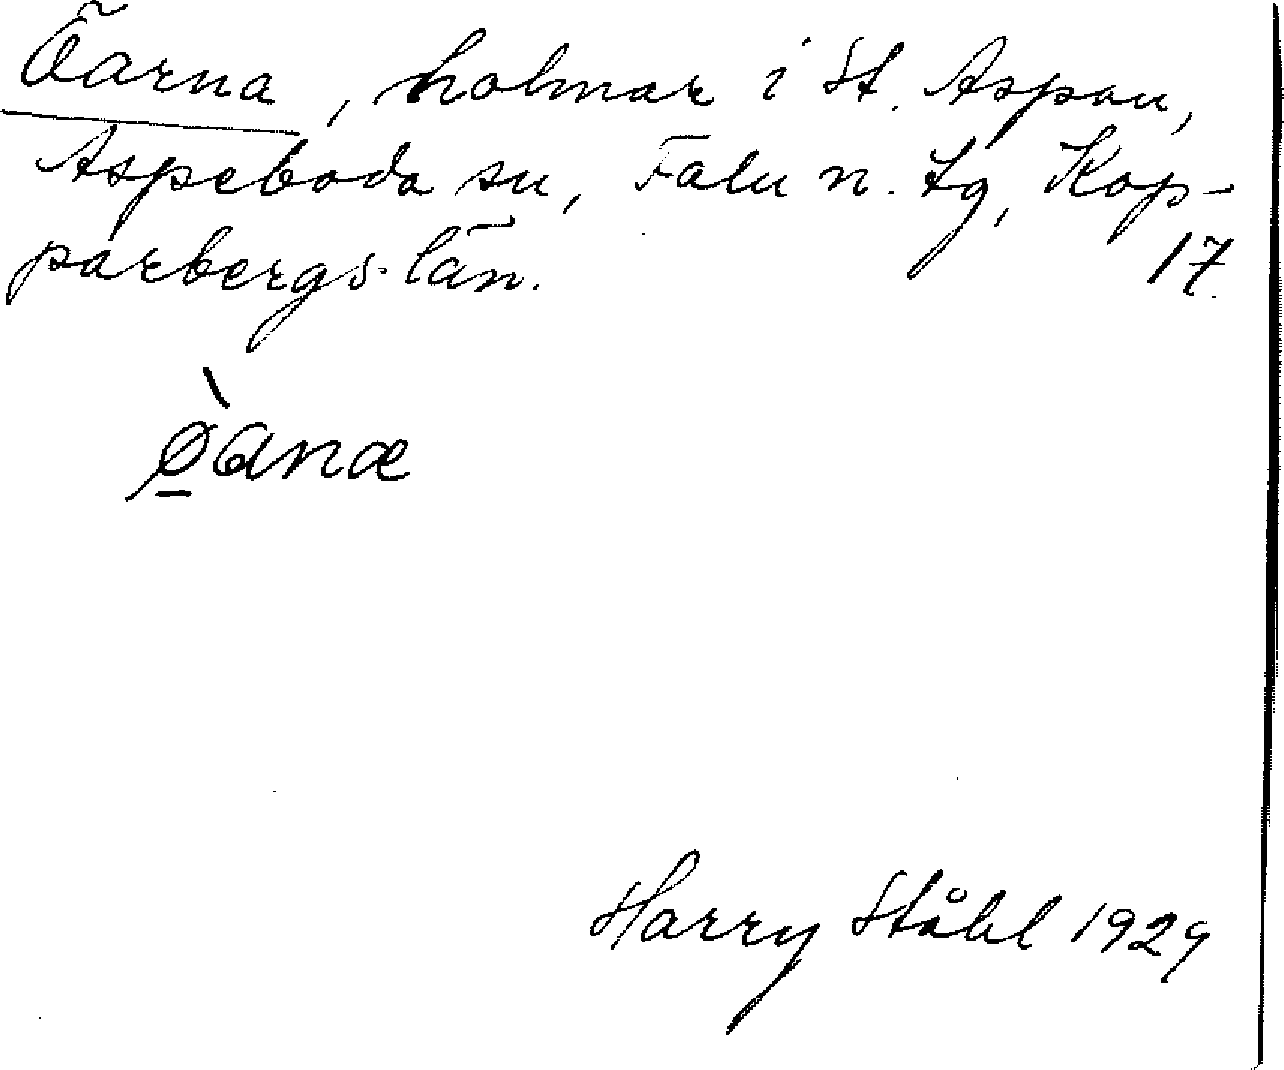 Öarna, holmar i St. Aspan,
Aspeboda sn, Falu n. tg, Kop-
parbergs län. 17.
ø̱̀ɑnæ
Harry Ståhl 1929